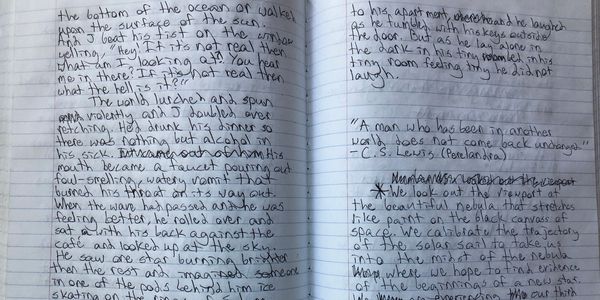 the bottom of the ocean or walked
upon the surface of the sun.
And I beat his fist on the window
yelling, "Hey! If it's not real then
what am I looking at? You hear
me in there? If it's not real then
what the hell is it?"
The world lurched and spun
violently and I doubled over
retching. He'd drunk his dinner so
there was nothing but alcohol in
his sick. His
mouth became a faucet pouring out
foul-smelling, watery vomit that
burned his throat on its way out.
When the wave had passed and he was
feeling better, he rolled over and
sat with his back against the
café and looked up at the sky.
He saw one star burning brighter
then the rest and imagined someone
in one of the pods behind him ice
skating on the rings
to his apartment, and he laughed
as he fumbled with his keys outside
the door. But as he lay alone in
the dark in his tiny room in his
tiny room feeling tiny he did not
laugh.
"A man who has been in another
world does not come back unchanged."
- C. S. Lewis (Perelandra)
* We look out the viewport at
the beautiful nebula that stretches
like paint on the black canvas of
space. We calibrate the trajectory
of the solar sail to take us
into the midst of the nebula
where we hope to find evidence
of the beginnings of a new star.
our third